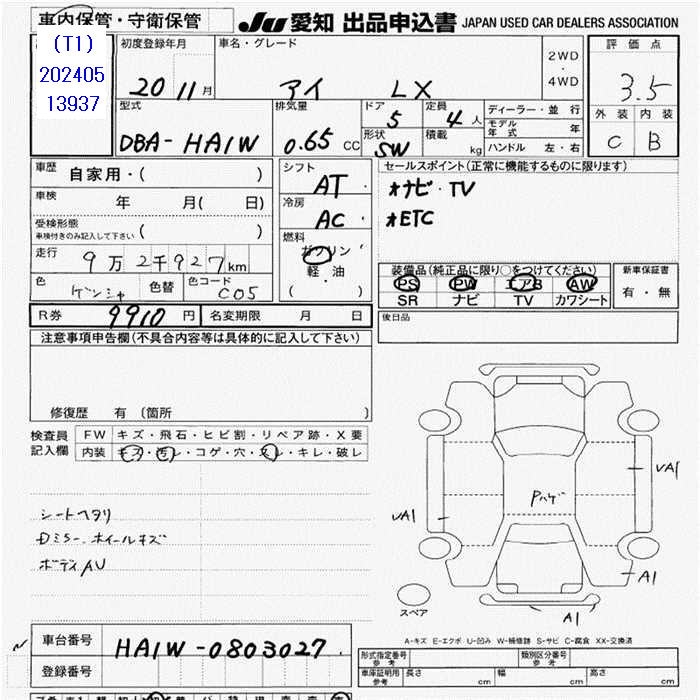 車内保管・守衛保管
JU 愛知 出品申込書 JAPAN USED CAR DEALERS ASSOCIATION
(T1)
202405
13937
初度登録年月 車名・グレード 2WD・4WD 評価点
20 11月 アイ LX 3.5
型式 排気量 ドア 定員 ディーラー・並行 外装 内装
DBA-HA1W 0.65 CC 5 4人 モデル年式 年 C B
形状 積載 ハンドル 左・右
SW kg
車歴 自家用・( ) シフト AT セールスポイント(正常に機能するものに限ります)
車検 年 月( 日) 冷房 AC オナビ・TV
受検形態 車検付きのみ記入して下さい ( ) オETC
燃料 ガソリン・軽油・( )
走行 9万2千927km
色 ゲンシャ 色替 色コード C05
装備品(純正品に限り○をつけてください) 新車保証書
PS PW エアB AW 有・無
SR ナビ TV カワシート
R券 9910円 名変期限 月 日 後日品
注意事項申告欄(不具合内容等は具体的に記入して下さい)
修復歴 有 (箇所 )
検査員記入欄 FW キズ・飛石・ヒビ割・リペア跡・X要
内装 キズ・汚レ・コゲ・穴・スレ・キレ・破レ
シートヘタリ
ホイールキズ
ボディAU
Pハゲ
VA1
VA1
A1
A1
スペア
A-キズ E-エクボ U-凹み W-補修跡 S-サビ C-腐食 XX-交換済
車台番号 HA1W-0803027
登録番号
形式指定番号 参考 類別区分番号 参考
車庫証明用 参考 長さ cm 幅 cm 高さ cm